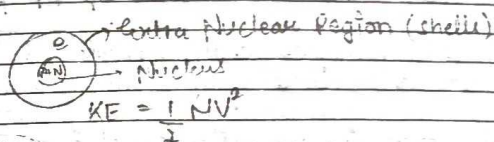 Extra Nuclear Region (shells)
e
N
Nucleus
KE = 1/2 NV²